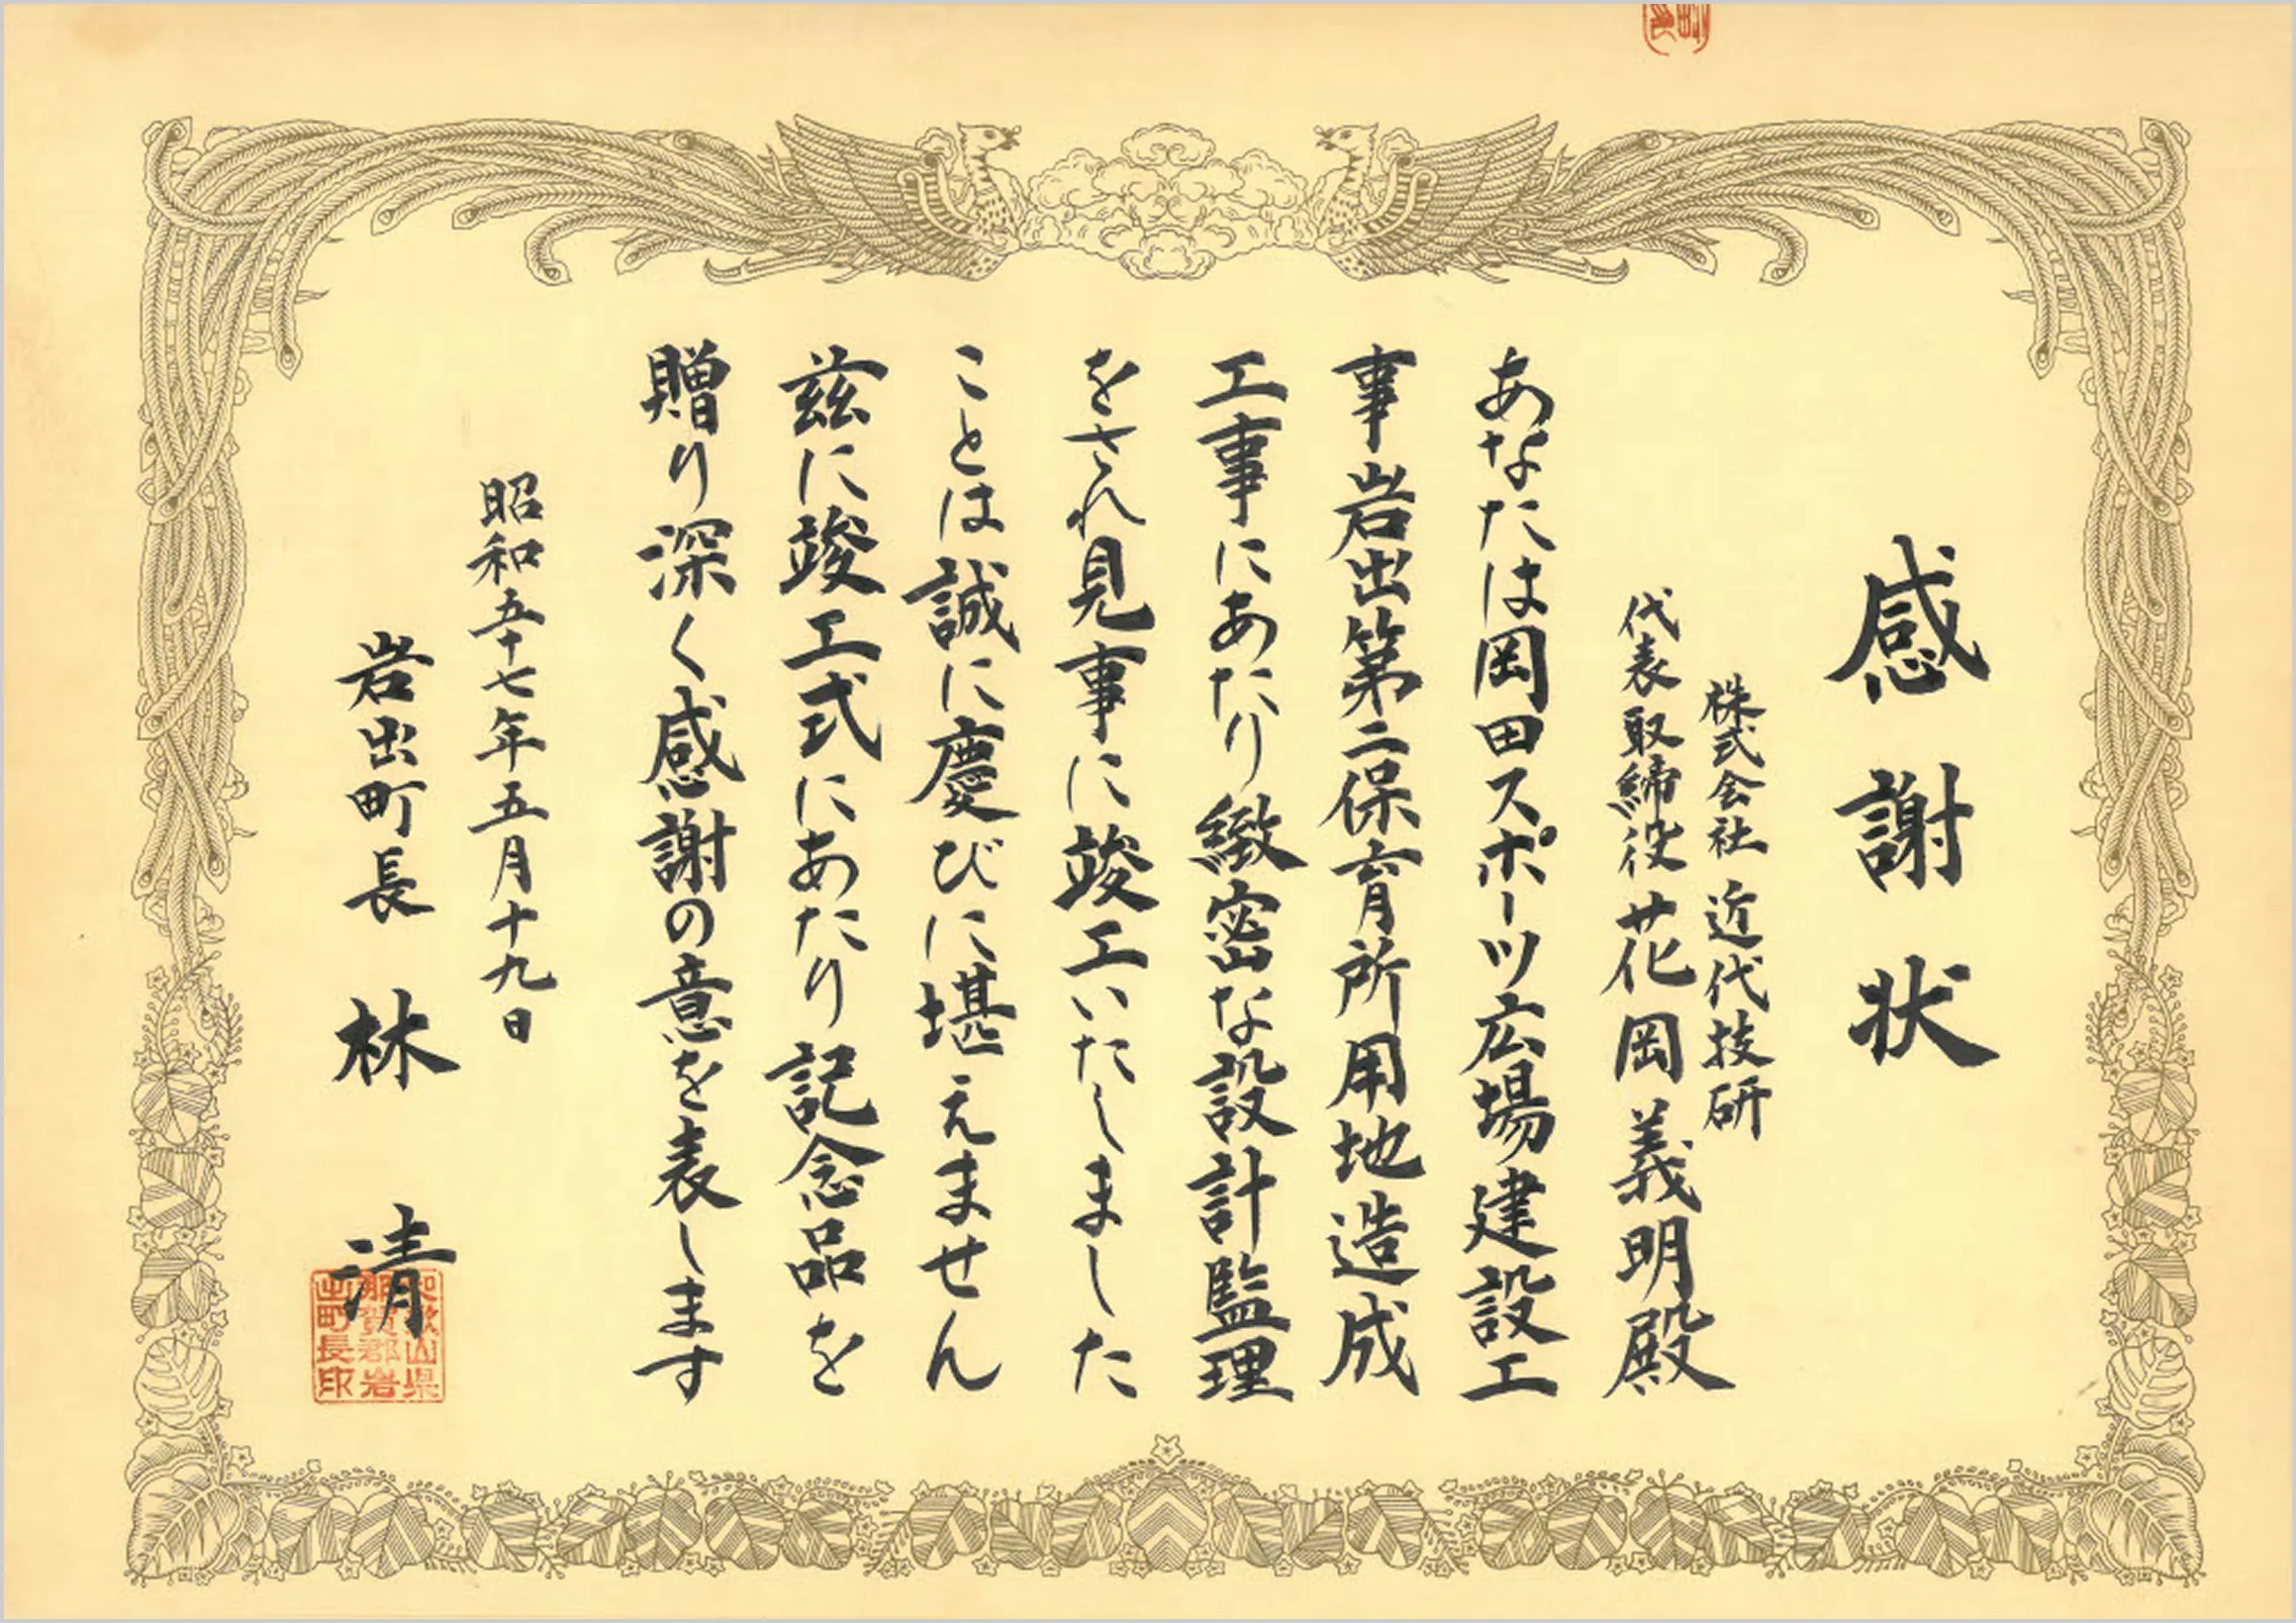 感謝状
株式会社 近代技研
代表取締役 花岡義明殿
あなたは岡田スポーツ広場建設工
事岩出第二保育所用地造成
工事にあたり緻密な設計監理
をされ見事に竣工いたしました
ことは誠に慶びに堪えません
茲に竣工式にあたり記念品を
贈り深く感謝の意を表します
昭和五十七年五月十九日
岩出町長 林 清
和歌山県
那賀郡岩
出町長印